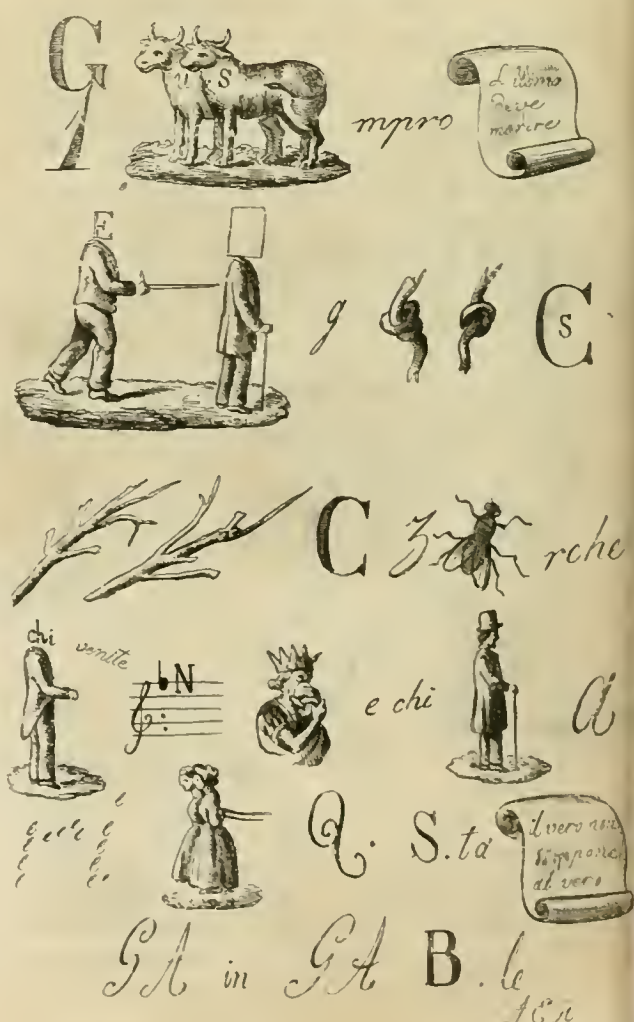 G
1
S
mpro
L'Uomo
deve
morire
E
g
C
S
C
rche
chi
venite
N
e chi
A
Q. S. ta
il vero non
si oppone
al vero
GA in GA B. le